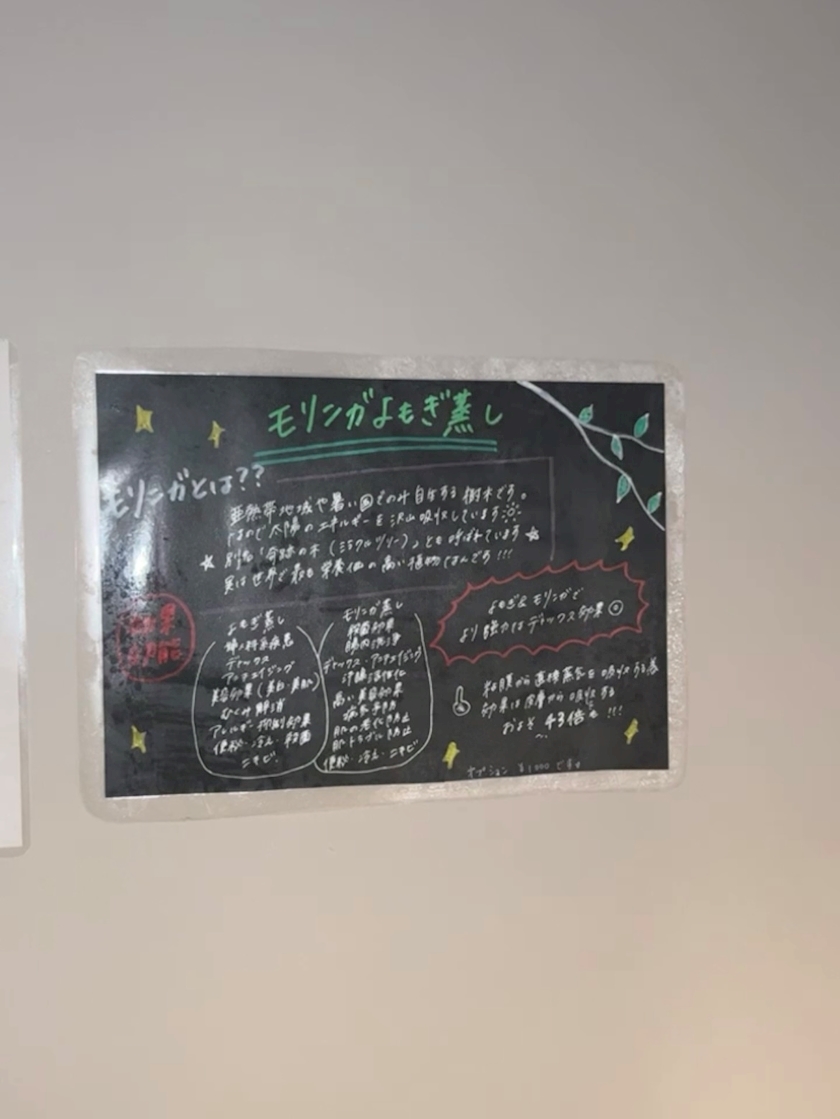 モリンガよもぎ蒸し
モリンガとは??
亜熱帯地域や暑い国でのみ自生する樹木です。
なので太陽のエネルギーを沢山吸収しています
別名「奇跡の木(ミラクルツリー)」とも呼ばれています
実は世界で最も栄養価の高い植物なんです!!!
効果
効能
よもぎ蒸し
婦人科系疾患
デトックス
アンチエイジング
美容効果(美白・美肌)
むくみ解消
アレルギー抑制効果
便秘・冷え・殺菌
ニキビ
モリンガ蒸し
殺菌効果
腸内洗浄
デトックス・アンチエイジング
高い美容効果
肌の老化防止
肌トラブル防止
便秘・冷え・ニキビ
よもぎ&モリンガで
より強力なデトックス効果
粘膜から直接蒸気を吸収する為
効果は皮膚から吸収する
およそ43倍!!!
オプション ¥1,000 です